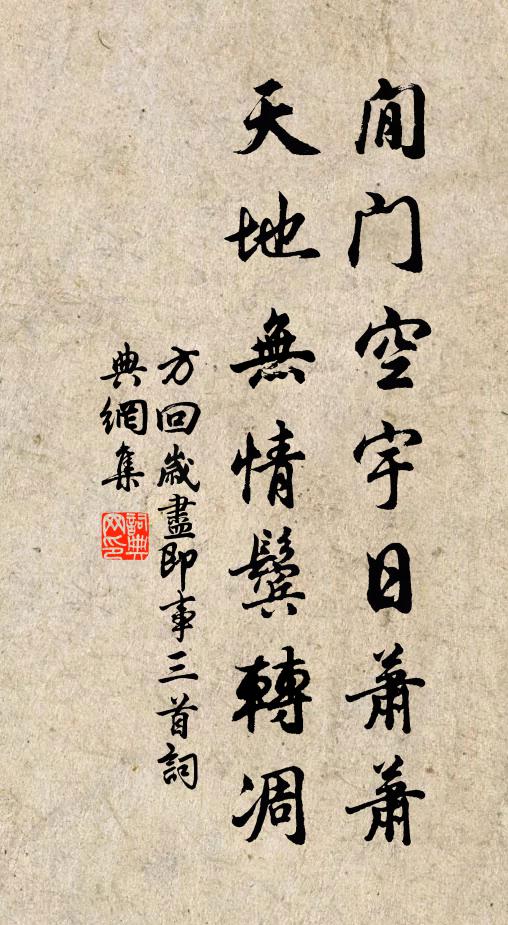 閒门空宇日蕭蕭
天地無情鬢轉凋
方回歲盡即事三首詞
典網集
詞典网印